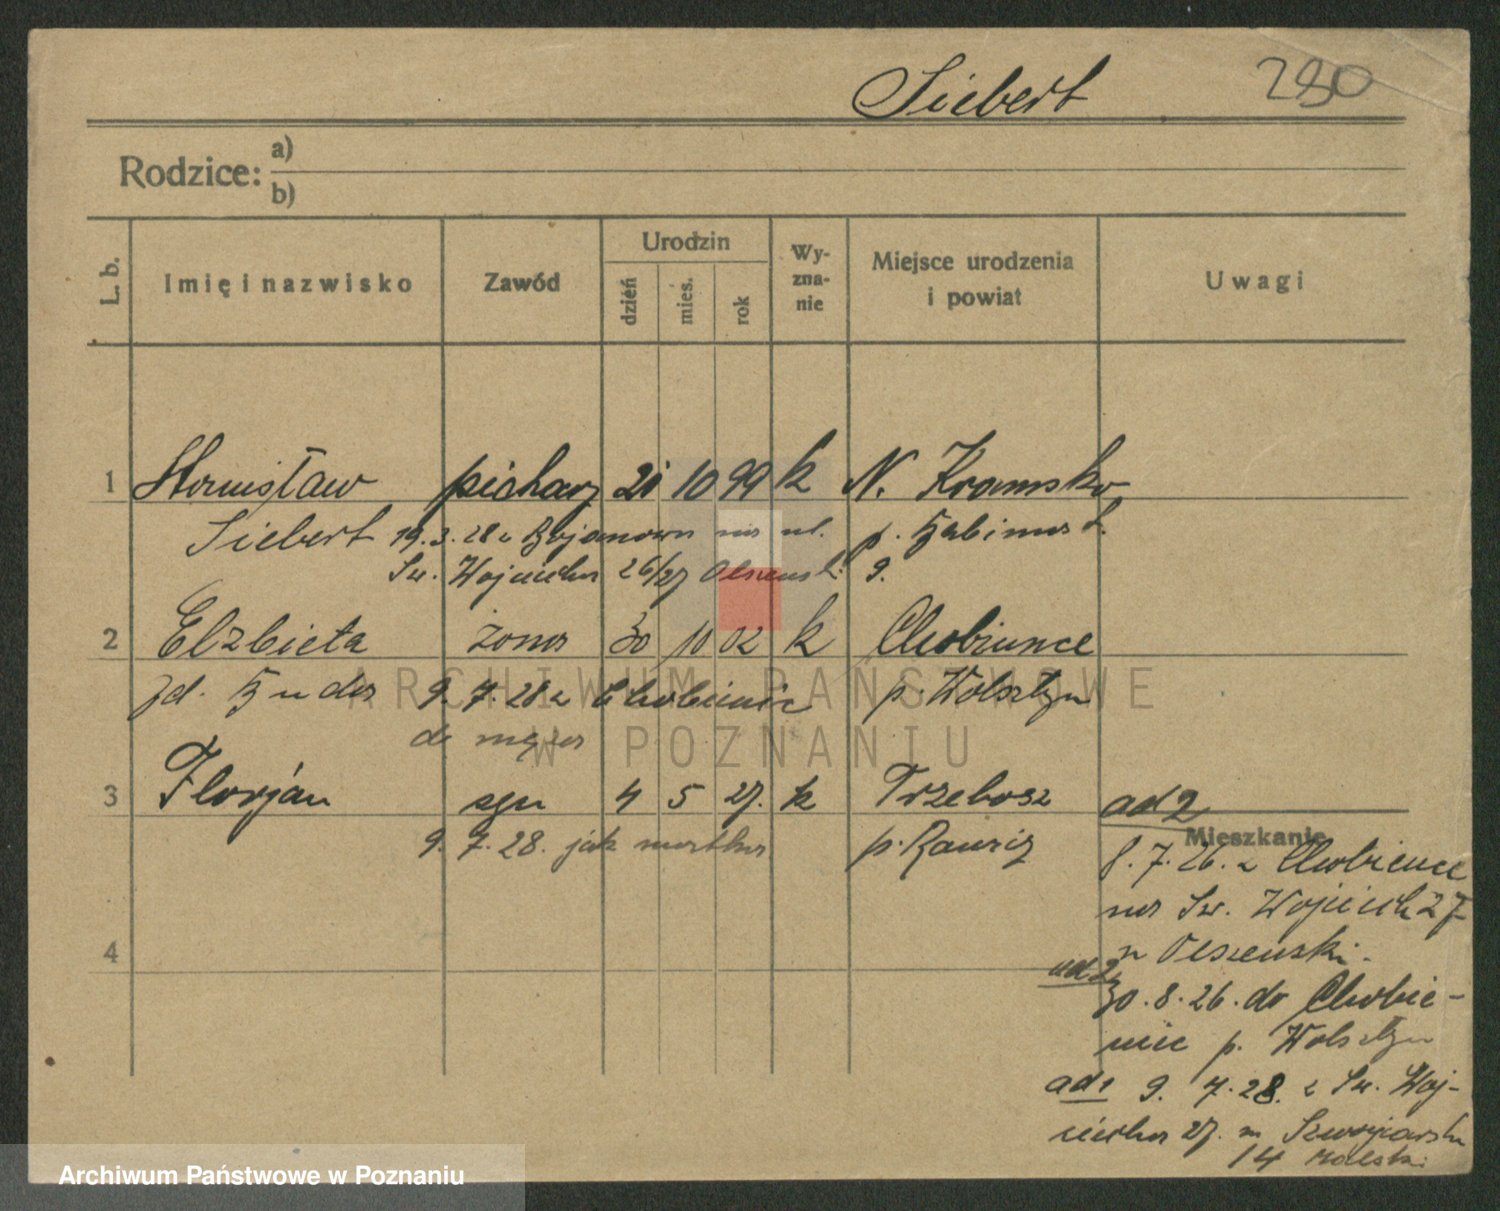 Siebert 290
Rodzice: a)
b)
L. b. Imię i nazwisko Zawód Urodzin dzień mieś. rok Wy-zna-nie Miejsce urodzenia i powiat Uwagi
1 Stanisław 10 99 k N. Kramsko
Siebert 19.3.28 z Bojanowa na ul.
Św. Wojciecha 26/27 Olszewski 9.
2 Elzbieta żona 30 10 02 k Chobienice
9. 7. 28 z Chobienic p. Wolsztyn
do męża
3 Florjan syn 4 5 27. k Trzebosz ad 2
9. 7. 28. jak matka p. Rawicz
Mieszkanie
8. 7. 26. z Chobience
na Św. Wojciech 27
Olszewski.
4
ad 2
30. 8. 26. do Chobie-
nic p. Wolsztyn
ad 1 9. 7. 28. z Św. Woj-
ciecha 27. na
14
ARCHIWUM PAŃSTWOWE
W POZNANIU
Archiwum Państwowe w Poznaniu